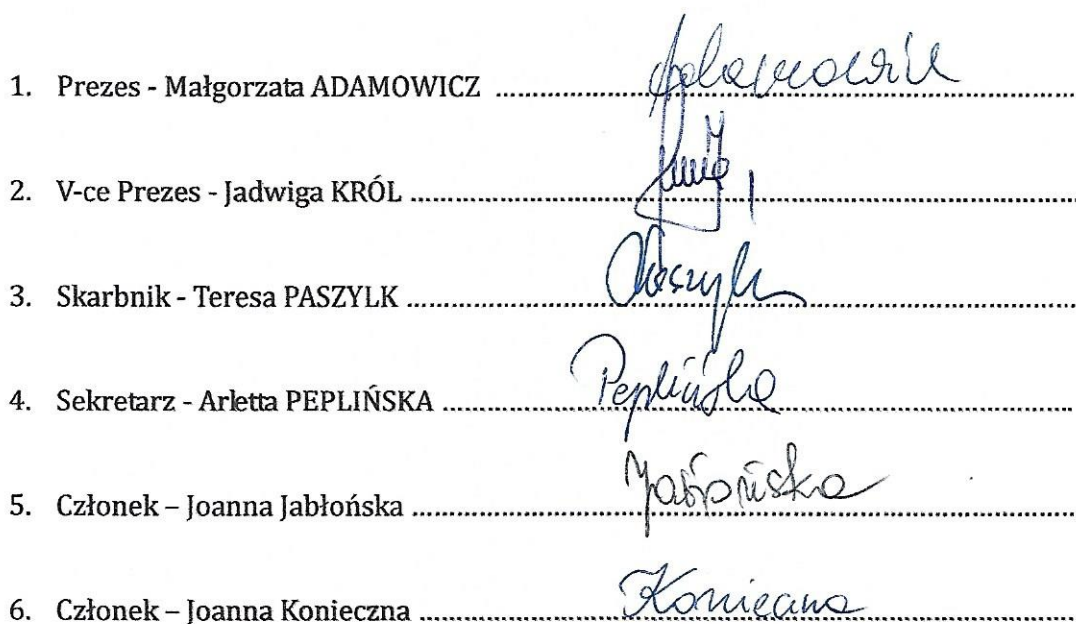 1. Prezes - Małgorzata ADAMOWICZ ........ Adamowicz
2. V-ce Prezes - Jadwiga KRÓL ........
3. Skarbnik - Teresa PASZYLK ........ Paszylk
4. Sekretarz - Arletta PEPLIŃSKA ........ Peplińska
5. Członek – Joanna Jabłońska ........ Jabłońska
6. Członek – Joanna Konieczna ........ Konieczna